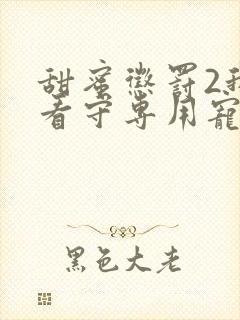 甜蜜惩罚2我
看守专用宠
黑色大老